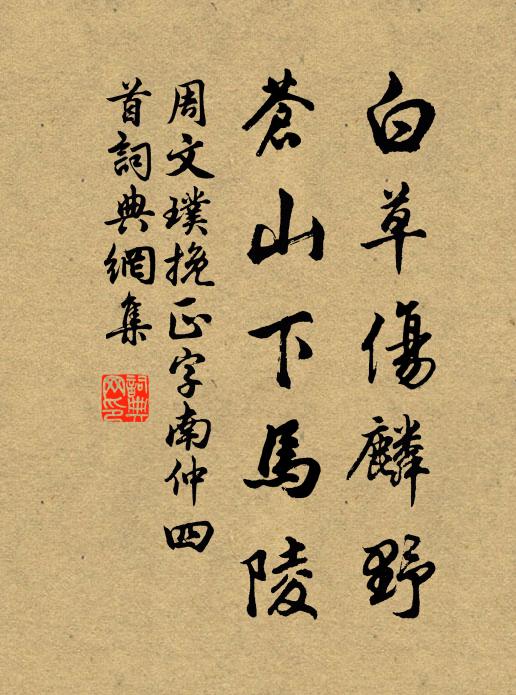 白草傷麟野
蒼山下馬陵
周文璞挽正字南仲四
首詞典網集
詞典
网印